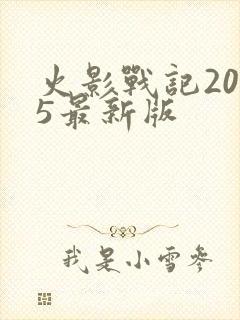 火影戰記20
5最新版
我是小雪參